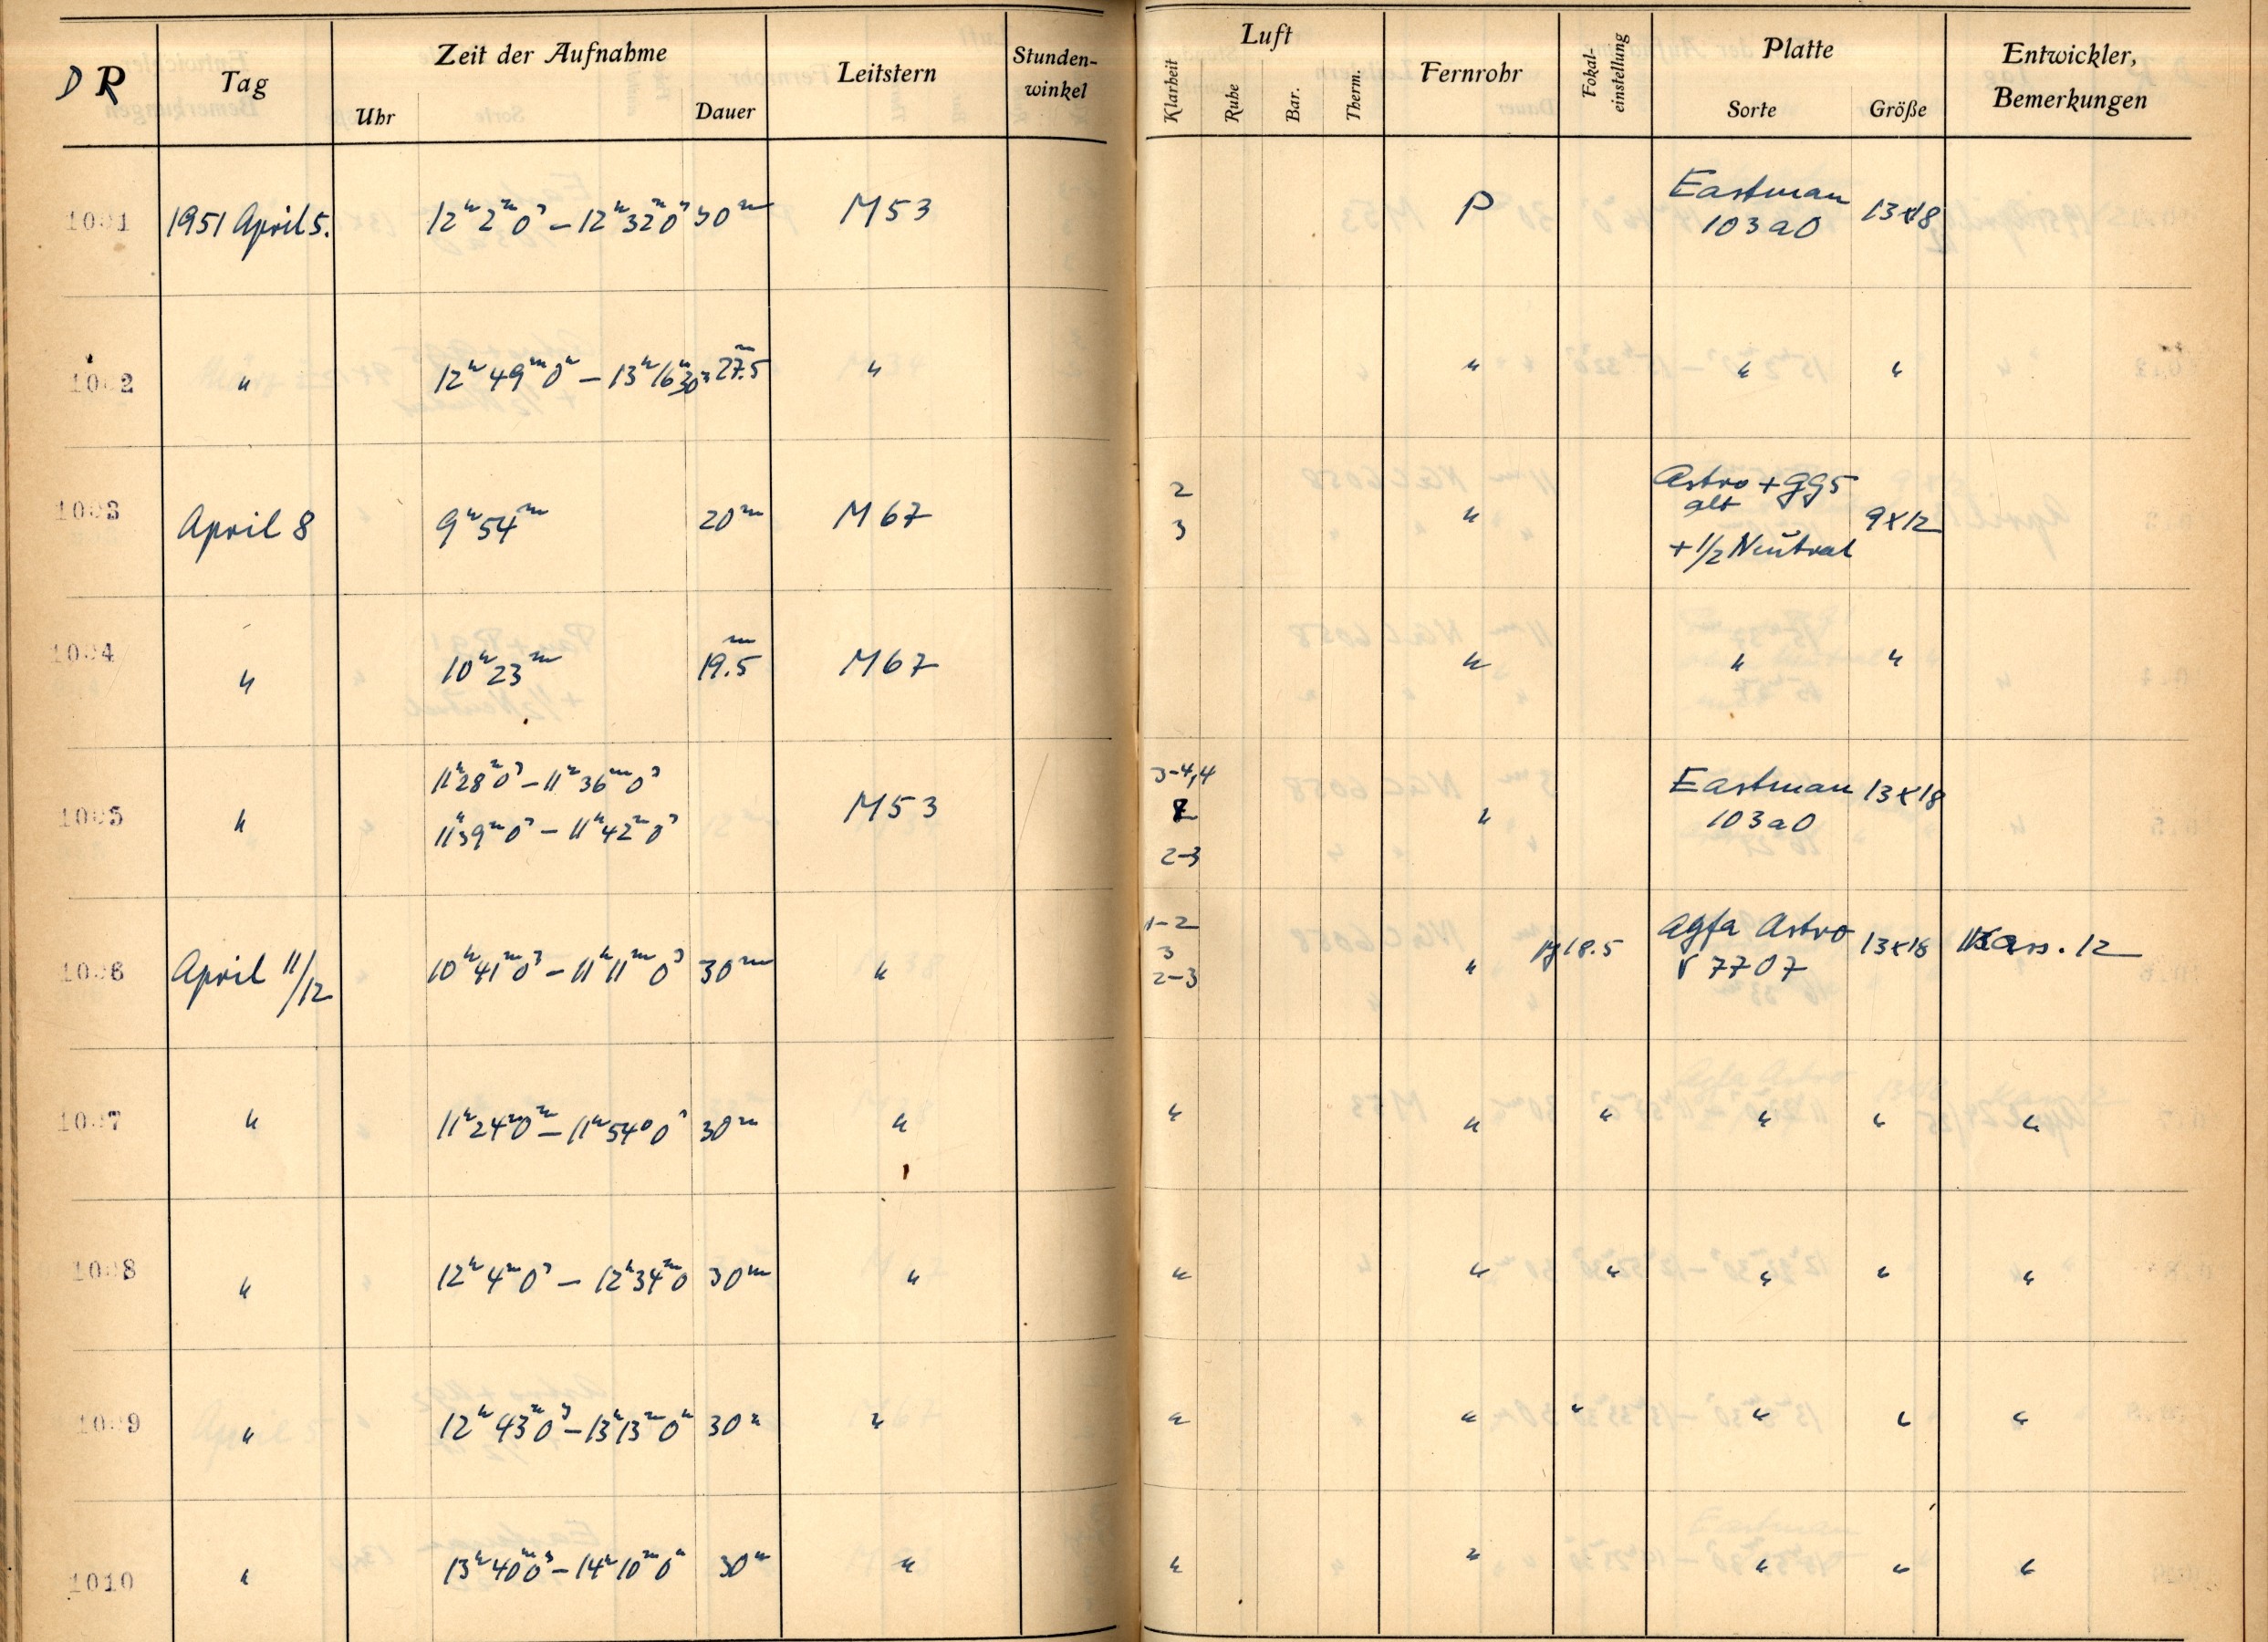 D R Tag Zeit der Aufnahme Leitstern Stunden-winkel Luft Fernrohr Fokal-einstellung Platte Entwickler, Bemerkungen
Uhr Dauer Klarheit Ruhe Bar. Therm. Sorte Größe
1001 1951 April 5. 12h 2m 0s – 12h 32m 0s 30m M 53 P Eastman 103a0 13x18
1002 " 12h 49m 0s – 13h 16m 30s 27.5m " " " "
1003 April 8 9h 54m 20m M 67 2 3 " Astro + GG5 alt + 1/2 Neutral 9x12
1004 " 10h 23m 19.5m M 67 " " "
1005 " 11h 28m 0s – 11h 36m 0s
11h 39m 0s – 11h 42m 0s M 53 3-4, 4 2-3 " Eastman 103a0 13x18
1006 April 11/12 10h 41m 0s – 11h 11m 0s 30m " 1-2 3 2-3 " 18.5 Agfa Astro 7707 13x18 12
1007 " 11h 24m 0 – 11h 54 0s 30m " " " " " " "
1008 " 12h 4m 0s – 12h 34m 0 30m " " " " " " "
1009 " 12h 43m 0s – 13h 13m 0s 30m " " " " " " "
1010 " 13h 40m 0s – 14h 10m 0s 30m " " " " " "